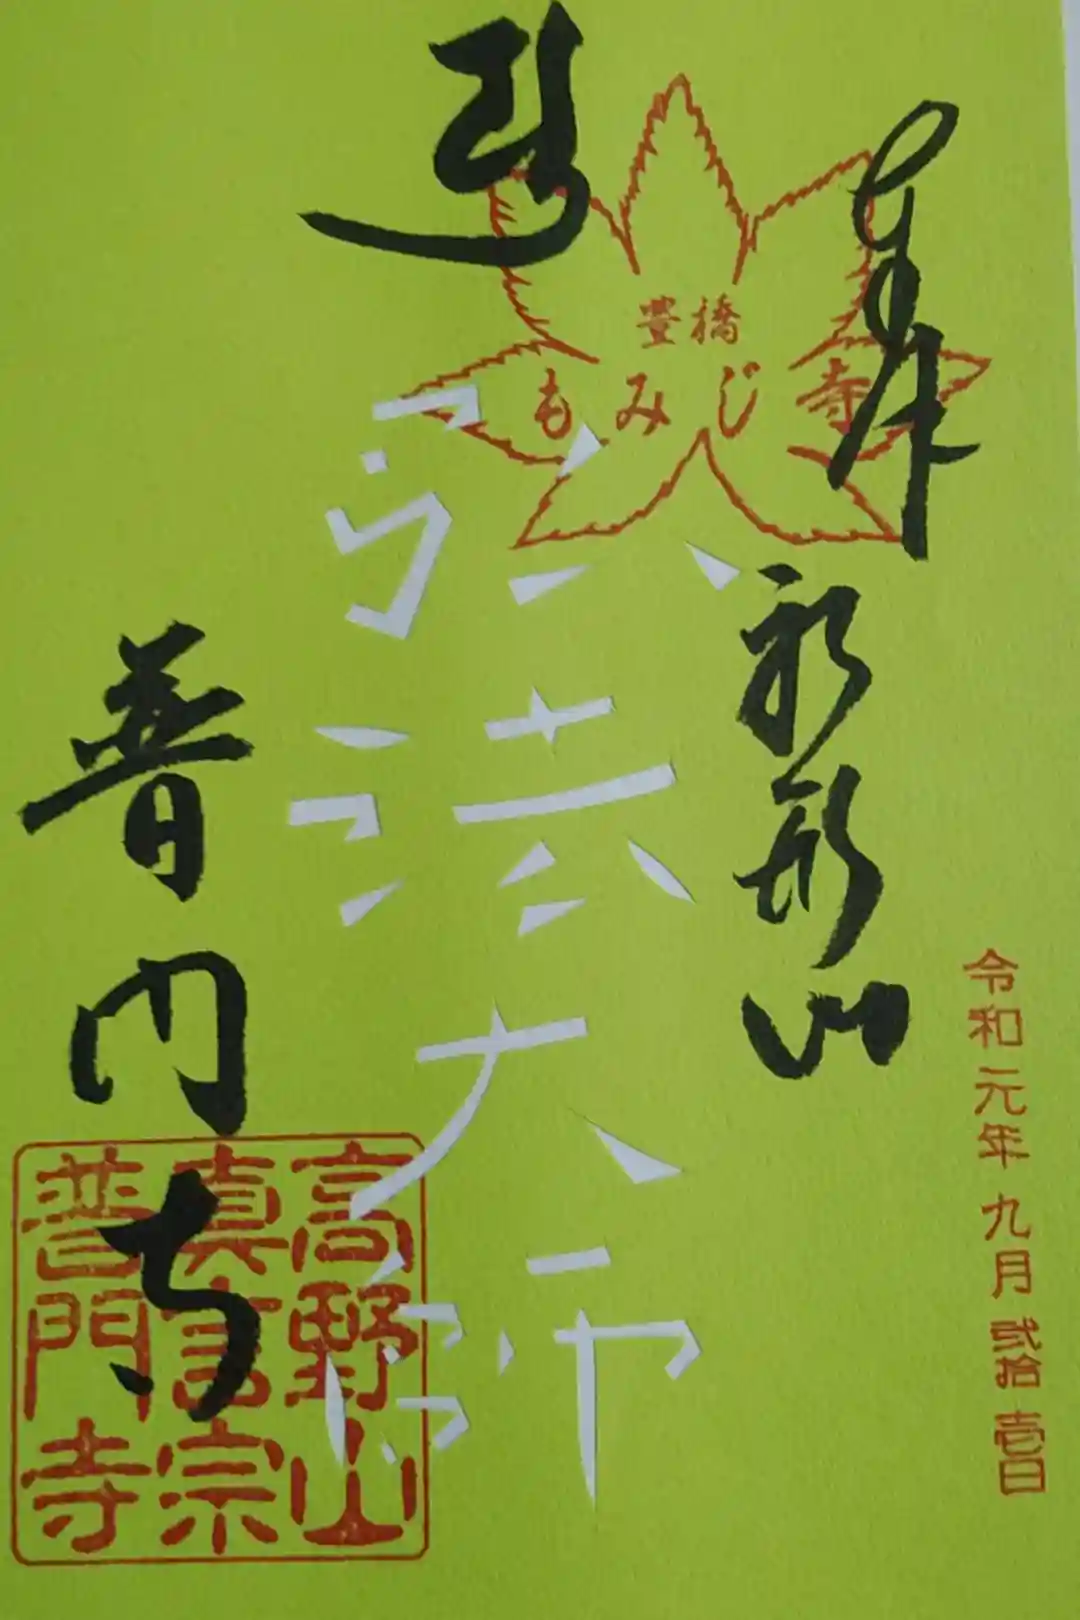 奉
船形山
令和元年九月弐拾壱日
豊橋
もみじ寺
弘法大師
普門寺
高野山
真言宗
普門寺